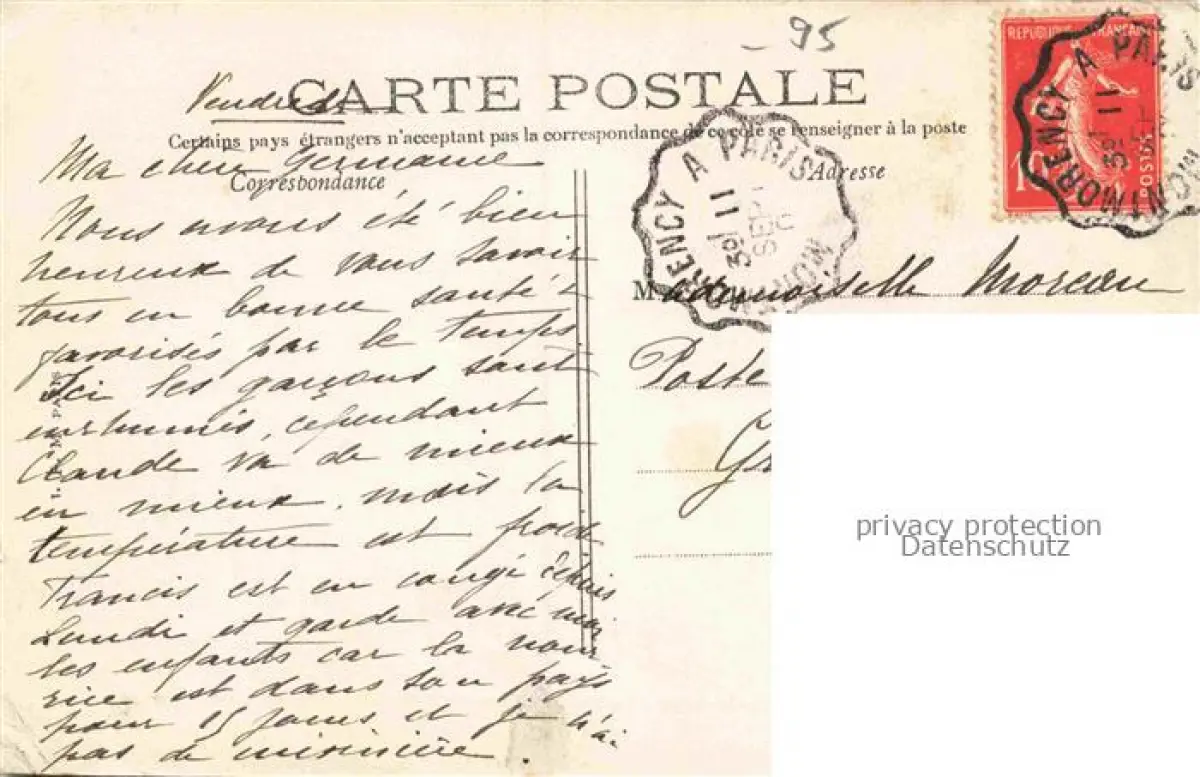 95
CARTE POSTALE
Vendredi
Certains pays étrangers n'acceptant pas la correspondance de ce côté se renseigner à la poste
Correspondance
Adresse
Ma chère Germaine
Nous avons été bien
heureux de vous savoir
tous en bonne santé &
favorisés par le temps
Ici les garçons sont
enrhumés, cependant
Claude va de mieux
en mieux. mais la
température est froide
Francis est en congé depuis
Lundi et garde avec moi
les enfants car la nour
rice est dans son pays
pour 15 jours et je n'ai
pas de
REPUBLIQUE FRANÇAISE
POSTES
10
MONTMORENCY A PARIS
3º
11
SEPT
MORENCY A PARIS
3º
11
Mademoiselle Moreau
Poste
privacy protection
Datenschutz